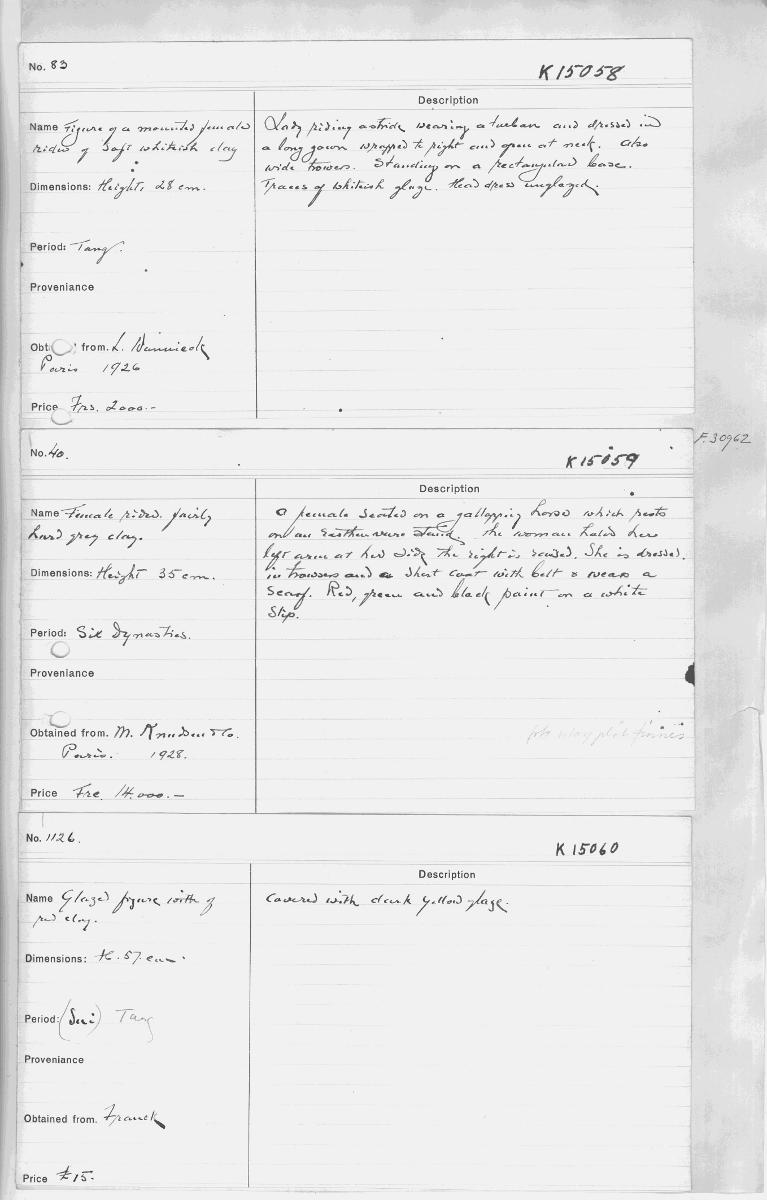 No. 83
K 15058
Description
Name Figure of a mounted female
rider of soft whiteish clay
Dimensions: Height, 28 cm.
Period: Tang.
Proveniance
Obt from. L. Wannieck
Paris 1926
Price Frs. 2000.-
Lady riding astride wearing a turban and dressed in
a long gown wrapped to right and open at neck. Also
wide trowers. Standing on a rectangular base.
Traces of whiteish glaze. Head dress unglazed.
No. 40.
K 15059
F. 30962
Description
Name Female rider. fairly
hard grey clay.
Dimensions: Height 35 cm.
Period: Six Dynasties.
Proveniance
Obtained from. M. Knudsen & Co.
Paris. 1928.
Price Frc. 14.000.-
A female seated on a gallopping horse which rests
on an Earthenware stand. The woman holds her
left arm at her side the right is raised. She is dressed
in trowsers and a short coat with belt & wears a
scarf. Red, green and black paint on a white
slip.
No. 1126.
K 15060
Description
Name Glazed figure with of
red clay.
Dimensions: H. 57. cm.
Period: (Sui) Tang
Proveniance
Obtained from. Franck
Price £15.
Covered with dark yellow glaze.